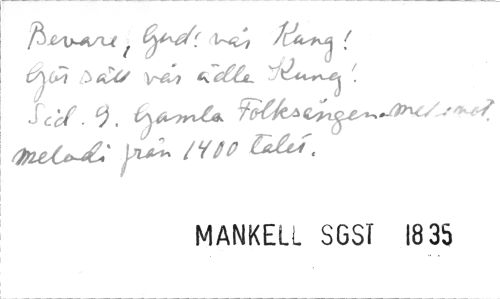 Bevare, Gud! vår Kung!
Gör säll vår ädle Kung!
Sid. 9. Gamla Folksången med not.
melodi från 1400 talet.
MANKELL SGST 1835